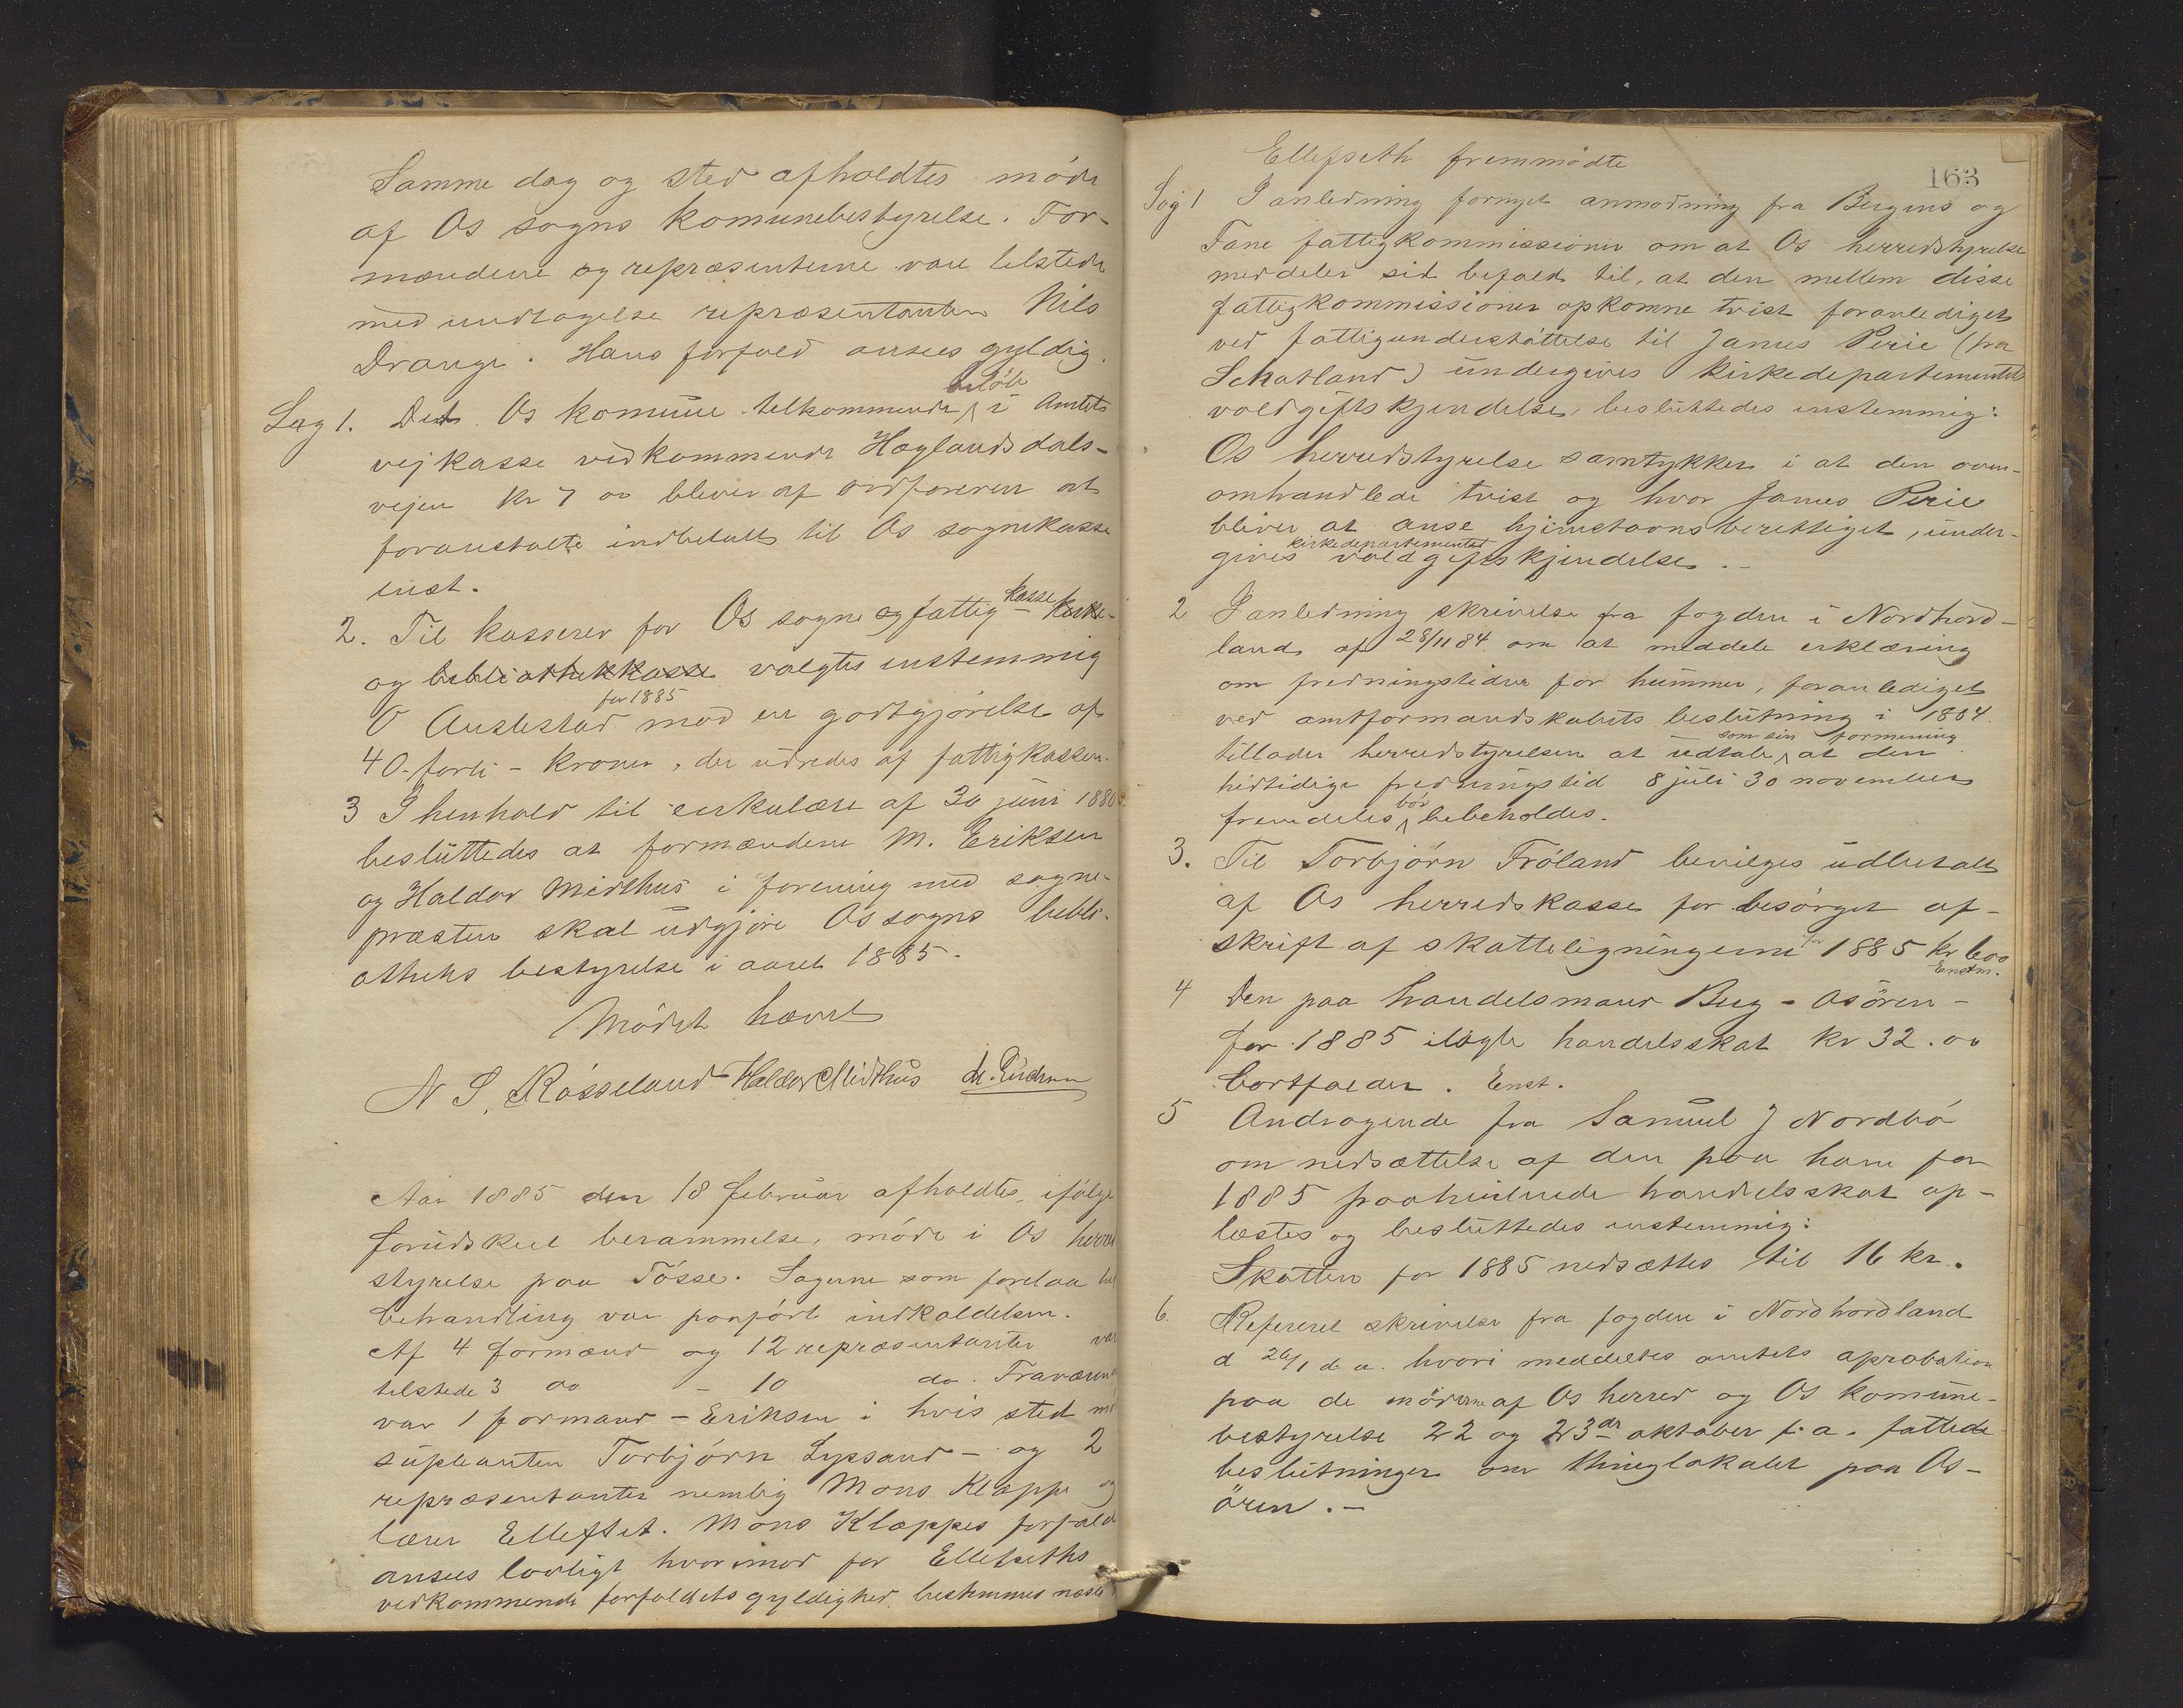 Samme dag og sted afholdtes möde
af Os sogns komunebestyrelse. For-
mændene og repræsenterne vare tilstede
med undtagelse repræsentanten Nils
Drange. Hans forfald ansees gyldig.
Sag 1. Det Os komune tilkommende beløb i Amtets
vejkasse vedkommende Hæglandsdals-
vejen kr 7 oo bliver af ordføreren at
foranstalte indbetalt til Os sognekasse
enst.
2. Til kasserer for Os sogne og fattig kasse kirke-
og bibliothekkasse valgtes enstemmig
O Auslestad for 1885 mod en godtgjörelse af
40 - forti - kroner, der udredes af fattigkassen.
3 I henhold til cirkulære af 30 juni 1880
besluttedes at formændene M. Eriksen
og Haldor Midthus i forening med sogne-
præsten skal udgjöre Os sogns bibli-
otheks bestyrelse i aaret 1885.
Mödet hævet
N S. Røsseland Haldor Midthus M. Erichsen
Aar 1885 den 18 februar afholdtes, ifölge
forudskeet berammelse, möde i Os herred
styrelse paa Tösse. Sagerne som forelaa til
behandling var paaført indkaldelsen.
Af 4 formænd og 12 repræsentanter var
tilstede 3 do - 10 do. Fraværende
var 1 formand - Eriksen i hvis sted mö
supleanten Torbjörn Lyssand - og 2
repræsentanter nemlig Mons Klæppe og
lærer Ellefset. Mons Klæppes forfald
ansees lovligt hvorimod for Ellefseths
vedkommende forfaldets gyldighed bestemmes næste
163
Ellefseth fremmödte
Sag 1 I anledning fornyet anmodning fra Bergens og
Fane fattigkommissioner om at Os herredstyrelse
meddeler sit bifald til, at den mellem disse
fattigkommissioner opkomne tvist foranlediget
ved fattigunderstöttelse til James Pirie (fra
Schotland) undergives kirkedepartementets
voldgiftskjendelse, besluttedes enstemmig:
Os herredstyrelse samtykker i at den oven-
omhandlede tvist og hvor James Pirie
bliver at anse hjemstavnsberettiget, under-
gives kirkedepartementet voldgiftskjendelse. -
2 I anledning skrivelse fra fogden i Nordhord-
land af 28/11 84 om at meddele erklæring
om fredningstider for hummer, foranlediget
ved amtformandskabets beslutning i 1884
tillader herredstyrelsen at udtale som sin formening at den
hidtidige fredningstid 8 juli 30 november
fremdeles bör bebeholdes.
3. Til Torbjörn Fröland bevilges udbetalt
af Os herredskasse for besörget af-
skrift af skatteligningerne for 1885 kr 6 oo
Enstm.
4 Den paa handelsmand Berg - Osören -
for 1885 ilagte handelsskat kr 32. oo
bortfalder. Enst.
5 Andragende fra Samuel J Nordbö
om nedsættelse af den paa ham for
1885 paahvilende handelsskat op-
læstes og besluttedes enstemmig:
Skatten for 1885 nedsættes til 16 kr.
6. Refereret skrivelse fra fogden i Nordhordland
d 26/1 d. a. hvori meddeeltes amtets aprobation
paa de mödrene af Os herred og Os komune-
bestyrelse 22 og 23de oktober f. a. fattede
beslutninger om thinglokalet paa Os-
ören. -